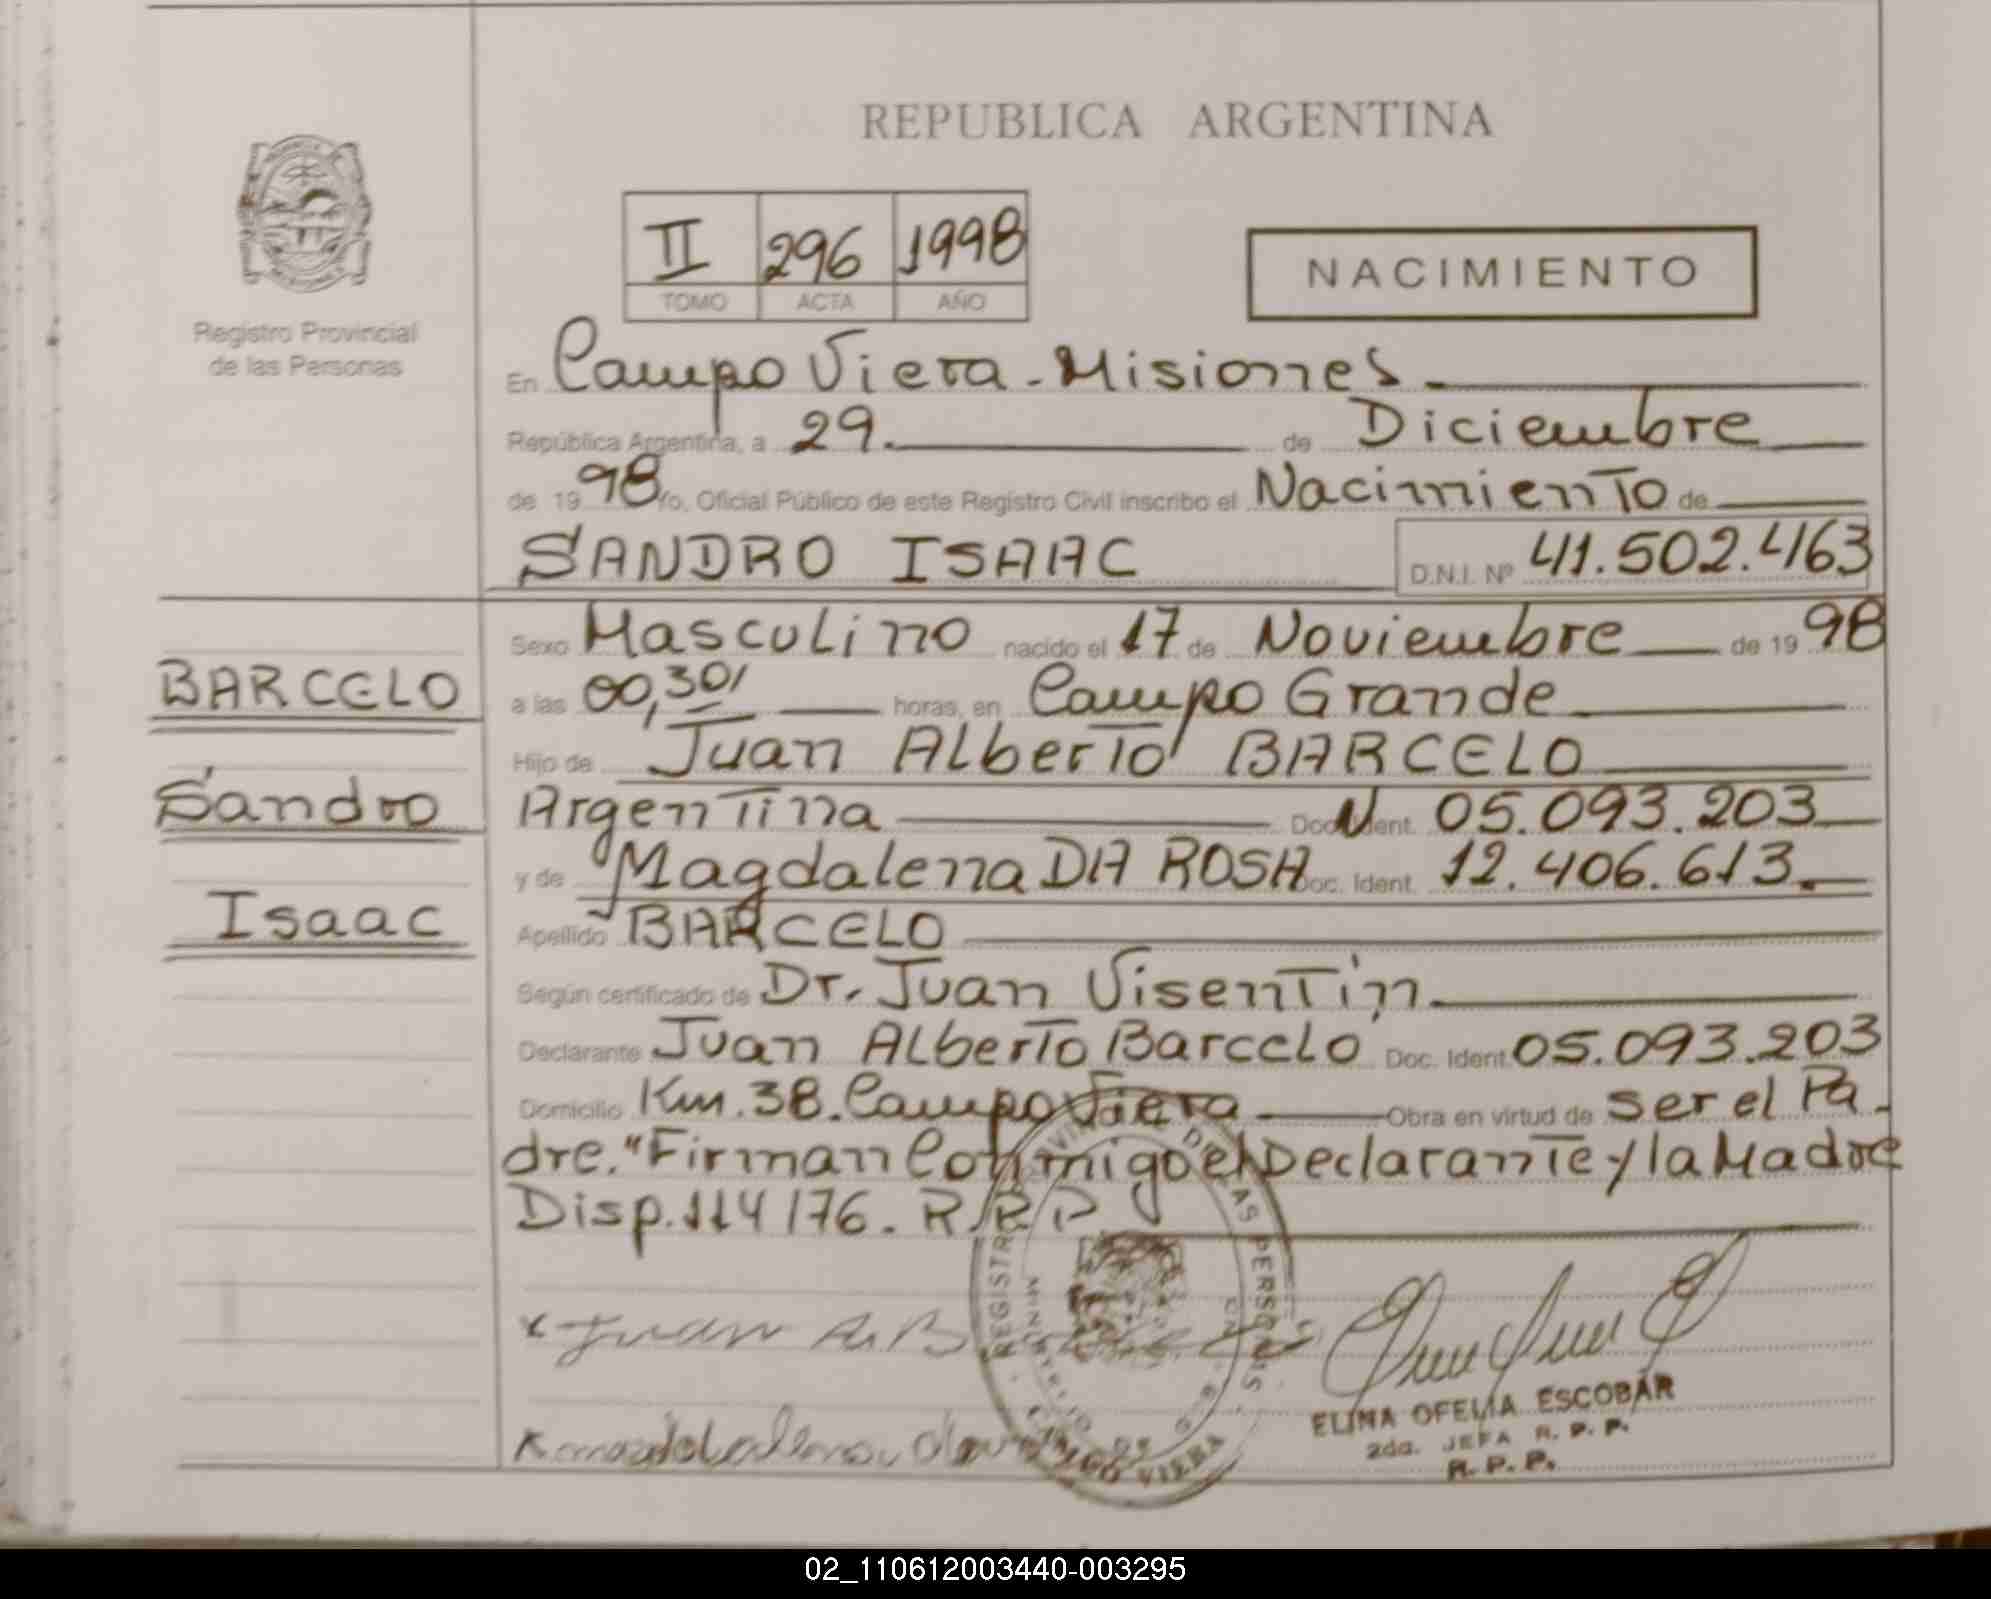 REPUBLICA ARGENTINA
II 296 1998
TOMO ACTA AÑO
NACIMIENTO
Registro Provincial
de las Personas
En Campo Viera - Misiones
República Argentina, a 29. de Diciembre
de 1998 Yo, Oficial Público de este Registro Civil inscribo el Nacimiento de
SANDRO ISAAC D.N.I. Nº 41.502.463
BARCELO
Sandro
Isaac
Sexo Masculino nacido el 17 de Noviembre de 1998
a las 00,30 horas, en Campo Grande
Hijo de Juan Alberto BARCELO
Argentina Doc. Ident. 05.093.203
y de Magdalena DA ROSA Doc. Ident. 12.406.613.
Apellido BARCELO
Según certificado de Dr. Juan Visentin
Declarante Juan Alberto Barcelo Doc. Ident. 05.093.203
Domicilio Km. 38. Campo Viera Obra en virtud de ser el Pa-
dre. "Firman Conmigo el Declarante y la Madre
Disp. 114/76. R.R.P
Juan A. B
ELINA OFELIA ESCOBAR
2da. JEFA R. P. P.
R. P. P.
02_110612003440-003295